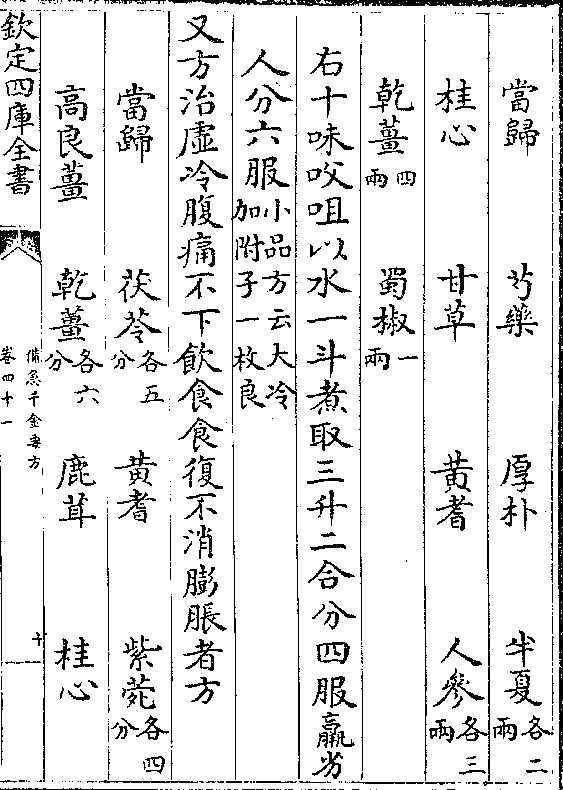 當歸 芍藥 厚朴 半夏各二兩
桂心 甘草 黃耆 人參各三兩
乾薑四兩 蜀椒一兩
右十味㕮咀以水一斗煮取三升二合分四服羸劣
人分六服小品方云大冷加附子一枚良
又方治虛冷腹痛不下飲食食復不消膨脹者方
當歸 茯苓各五分 黃耆 紫菀各四分
高良薑 乾薑各六分 鹿茸 桂心
欽定四庫全書
備急千金要方
卷四十一
十